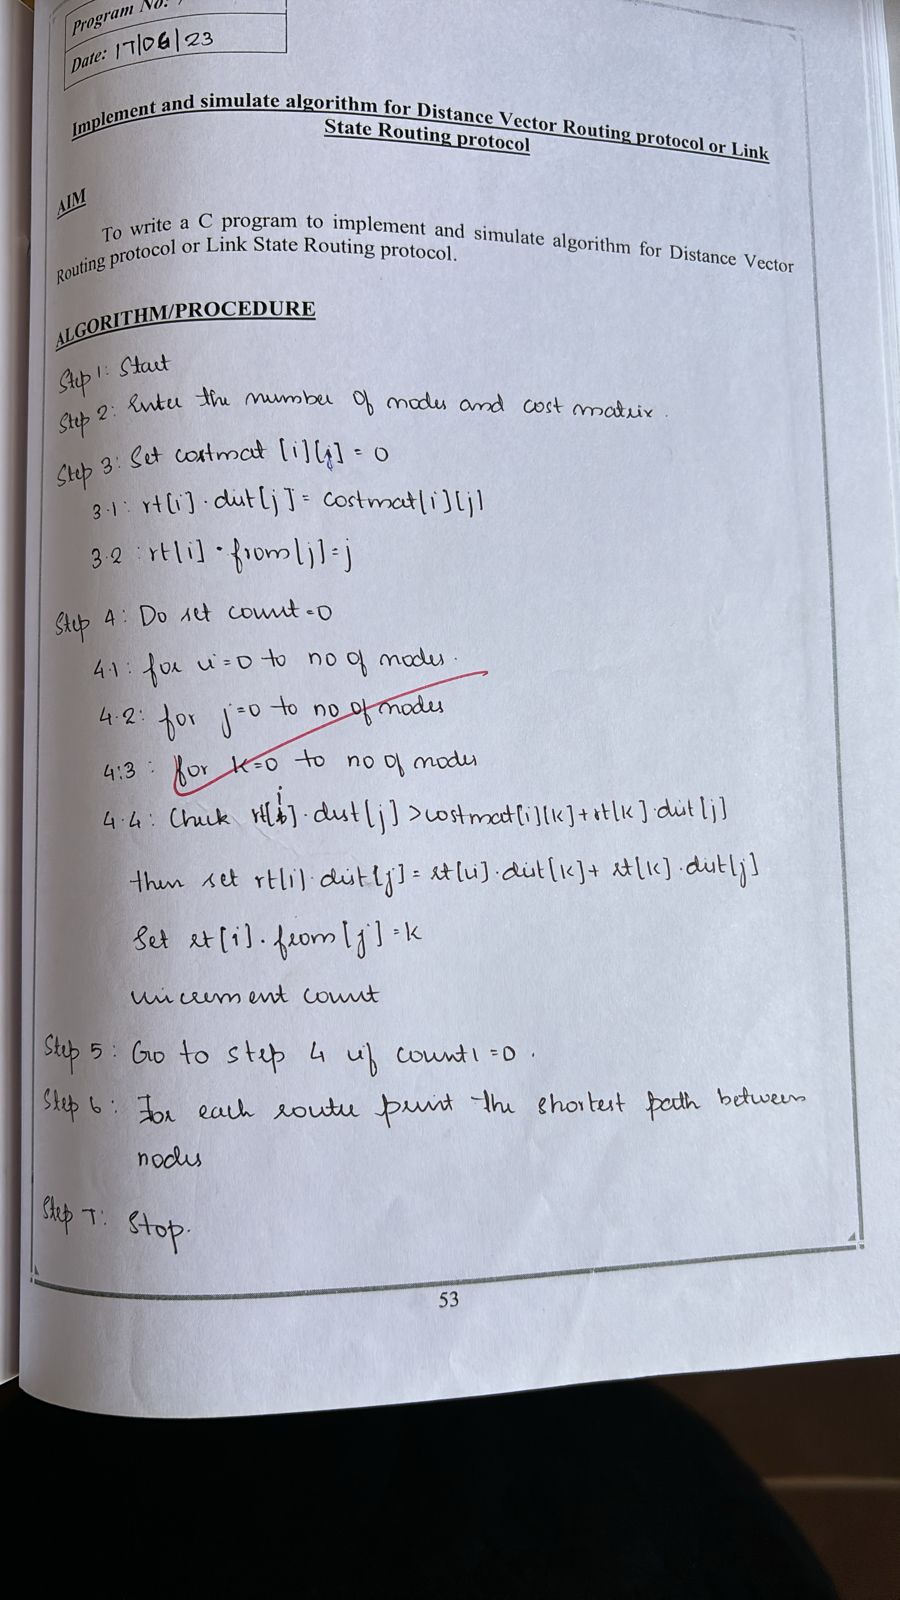 Program No:
Date: 17/06/23
Implement and simulate algorithm for Distance Vector Routing protocol or Link
State Routing protocol
AIM
To write a C program to implement and simulate algorithm for Distance Vector
Routing protocol or Link State Routing protocol.
ALGORITHM/PROCEDURE
Step 1: Start
Step 2: Enter the number of nodes and cost matrix.
Step 3: Set costmat [i][j] = 0
3.1: rt[i].dist[j] = costmat[i][j]
3.2: rt[i].from[j]=j
Step 4: Do set count=0
4.1: for i=0 to no of nodes.
4.2: for j=0 to no of nodes
4:3: for k=0 to no of nodes
4.4: Check rt[i].dist[j]>costmat[i][k]+rt[k].dist[j]
then set rt[i].dist[j]= rt[i].dist[k]+ rt[k].dist[j]
Set rt[i].from[j]=k
increment count
Step 5: Go to step 4 if count!=0.
Step 6: For each route print the shortest path between
nodes
Step 7: Stop.
53